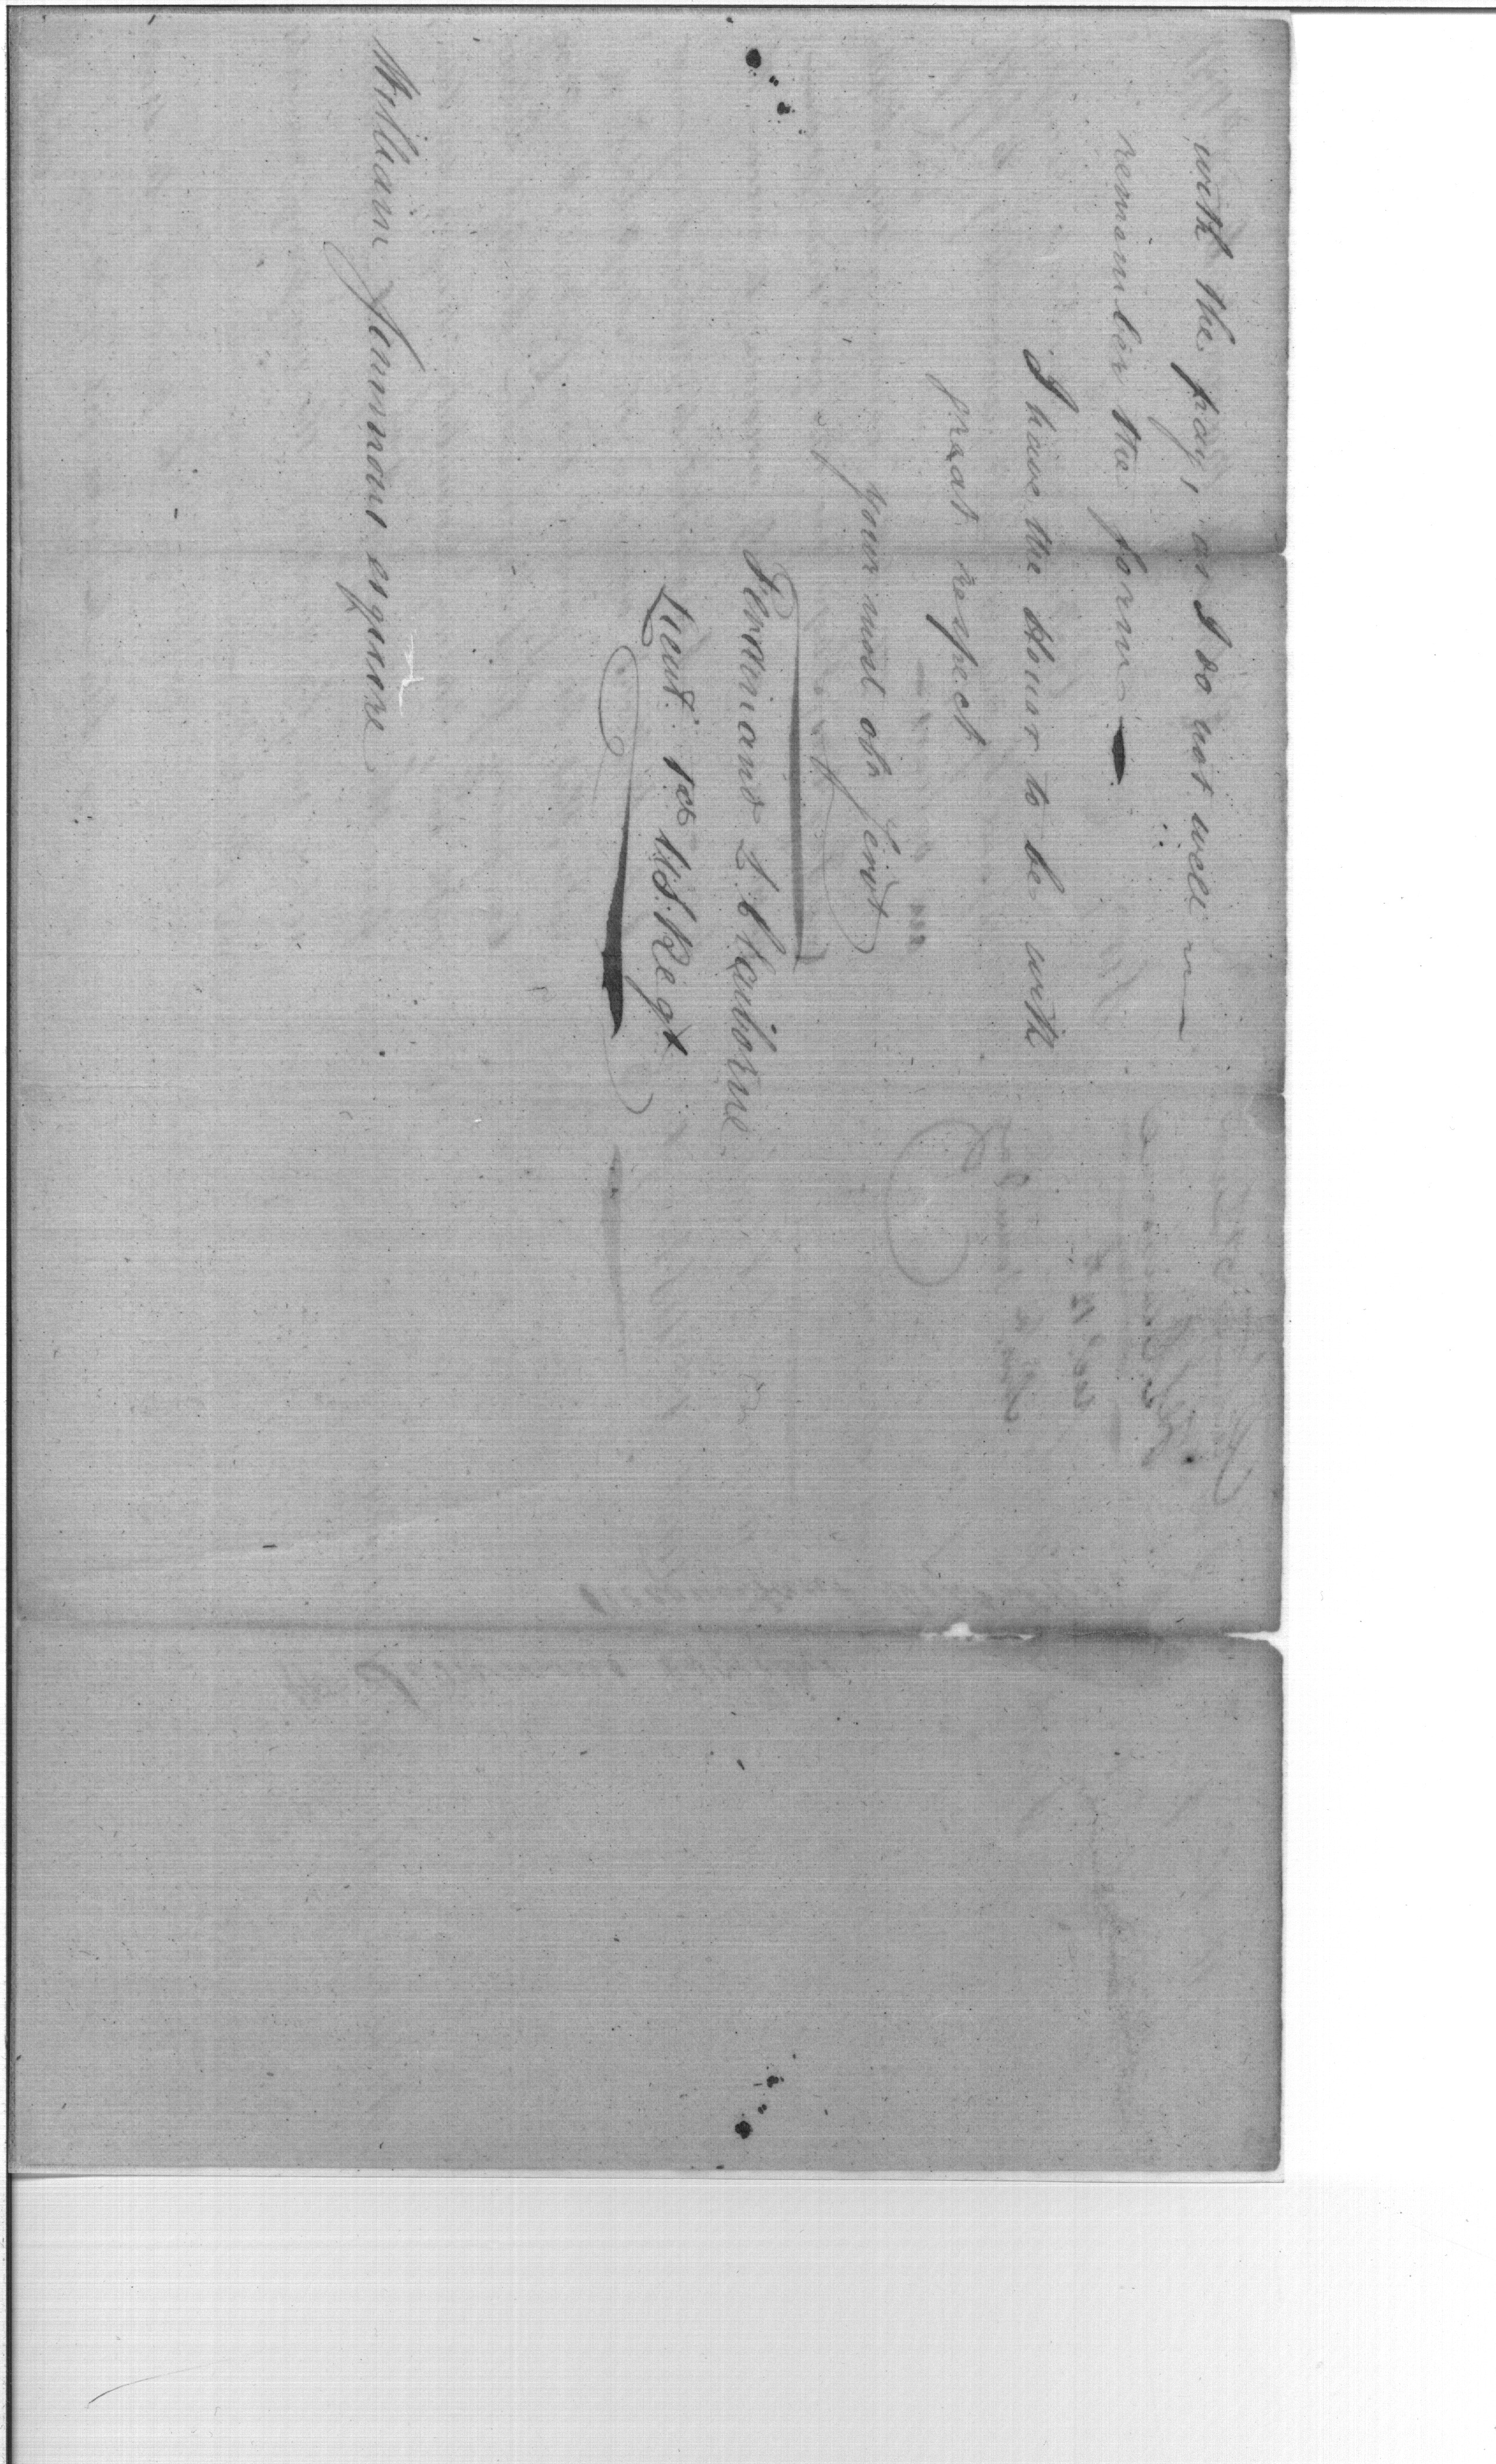 with the pay, as I do not well
remamber the form
I have the Honor to be with
great respect
your most obt servt
Ferdinand L Claiborne
Lieut. 1st U.S. Regt
William Simmons esquire